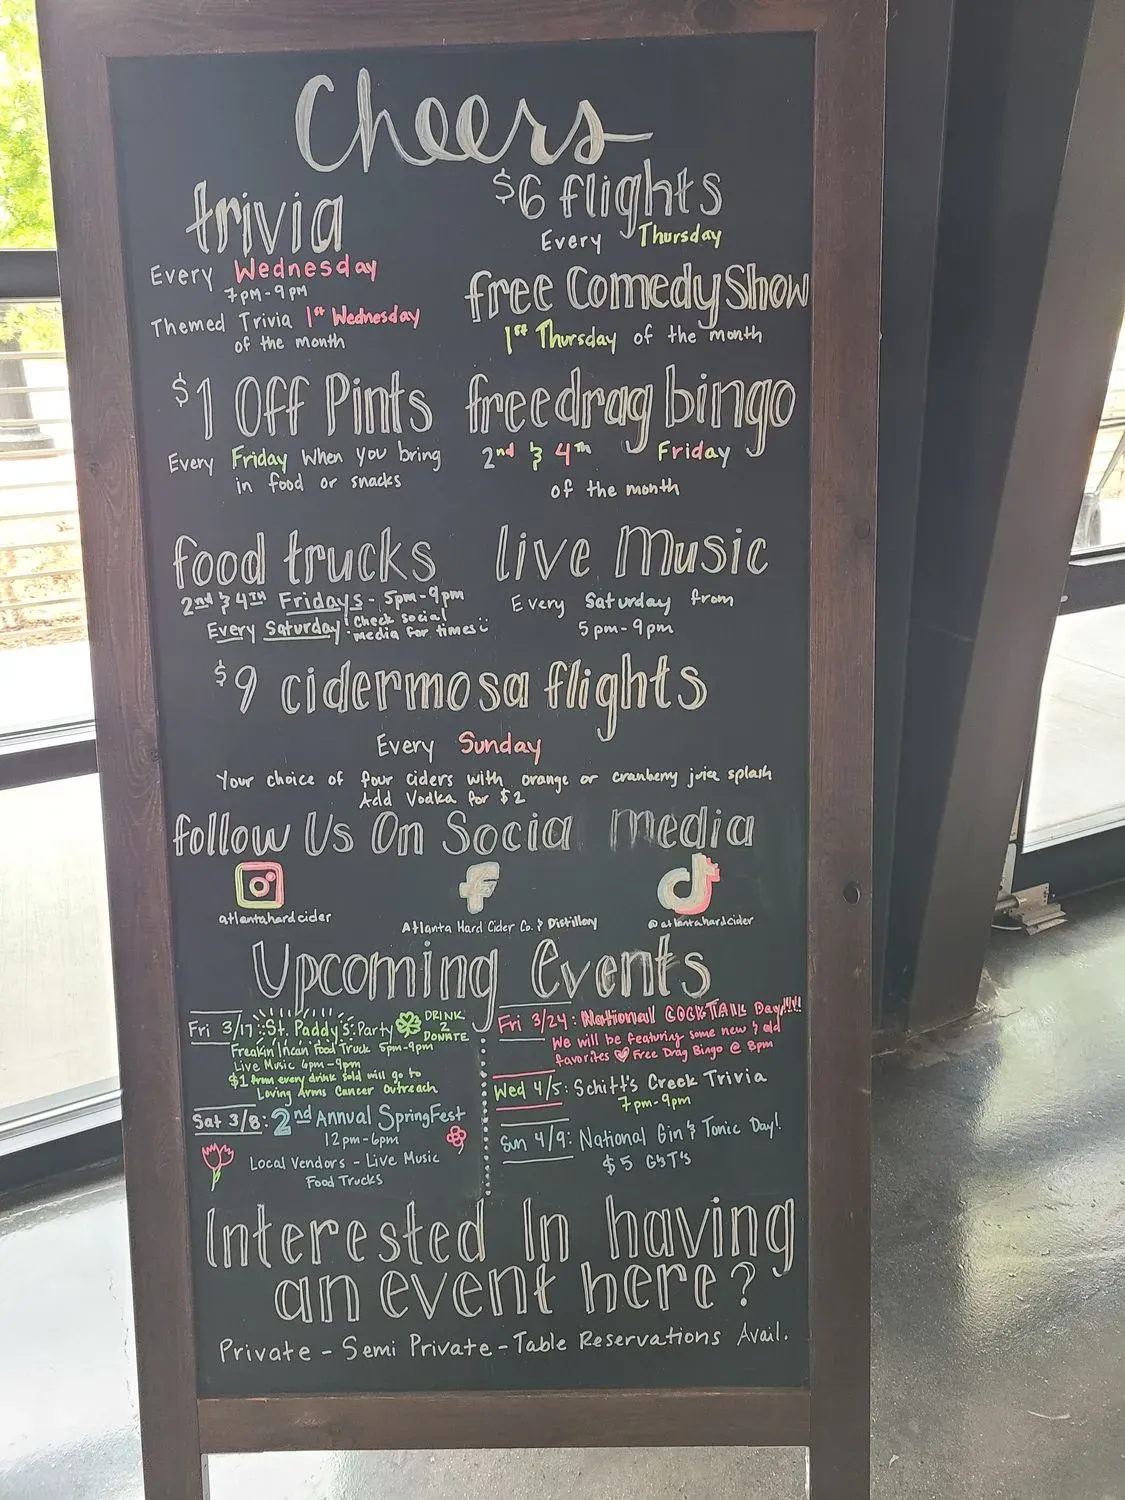 Cheers
trivia
Every Wednesday
7pm-9pm
Themed Trivia 1st Wednesday
of the month
$6 flights
Every Thursday
free Comedy Show
1st Thursday of the month
$1 Off Pints
Every Friday When you bring
in food or snacks
free drag bingo
2nd & 4th Friday
of the month
food trucks
2nd & 4TH Fridays - 5pm-9pm
Every Saturday! Check social
media for times :)
live Music
Every Saturday from
5pm-9pm
$9 cidermosa flights
Every Sunday
Your choice of four ciders with orange or cranberry juice splash
Add Vodka for $2
follow Us On Socia media
atlantahardcider
Atlanta Hard Cider Co. & Distillery
@atlantahardcider
Upcoming Events
Fri 3/17: St. Paddy's Party
DRINK
2
DONATE
Freakin Incan Food Truck 5pm-9pm
Live Music 6pm-9pm
$1 from every drink sold will go to
Loving Arms Cancer Outreach
Sat 3/8: 2nd Annual SpringFest
12pm-6pm
Local Vendors - Live Music
Food Trucks
Fri 3/24: National COCKTAIL Day!!!!
We will be featuring some new & old
favorites Free Drag Bingo @ 8pm
Wed 4/5: Schitt's Creek Trivia
7pm-9pm
Sun 4/9: National Gin & Tonic Day!
$5 G&T's
Interested In having
an event here?
Private - Semi Private - Table Reservations Avail.